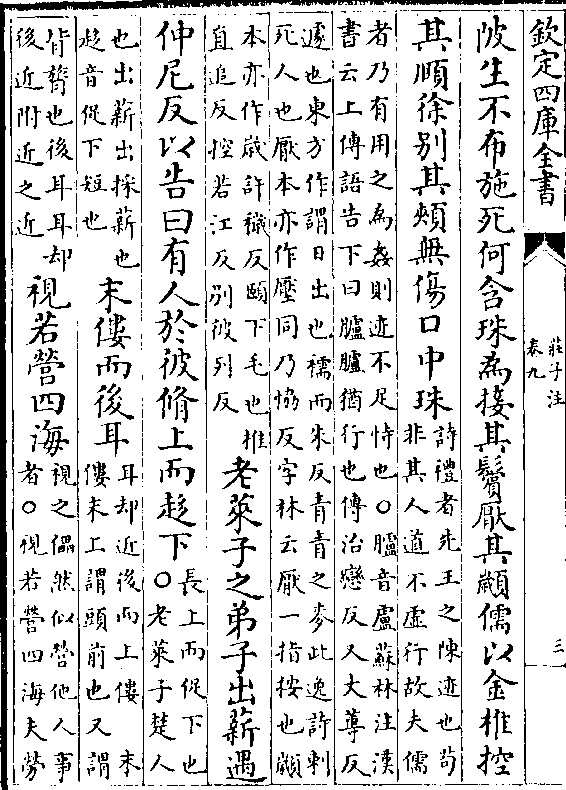 欽定四庫全書
莊子注
卷九
三
陂生不布施死何含珠為接其鬢厭其顪儒以金椎控
其頤徐别其頰無傷口中珠
詩禮者先王之陳迹也茍
非其人道不虚行故夫儒
者乃有用之為姦則迹不足恃也○臚音盧蘇林注漢
書云上傳語告下曰臚臚猶行也傳治戀反又大尊反
遽也東方作謂日出也襦而朱反青青之麥此逸詩刺
死人也厭本亦作壓同乃協反字林云厭一指按也顪
本亦作噦許穢反頤下毛也椎
直追反控苦江反别彼列反
老萊子之弟子出薪遇
仲尼反以告曰有人於彼脩上而趍下
長上而促下也
○老萊子楚人
也出薪出採薪也
趍音促下短也
末僂而後耳
耳却近後而上僂 末
僂末上謂頭前也又謂
背膂也後耳耳却
後近附近之近
視若營四海
視之儡然似營他人事
者○視若營四海夫勞